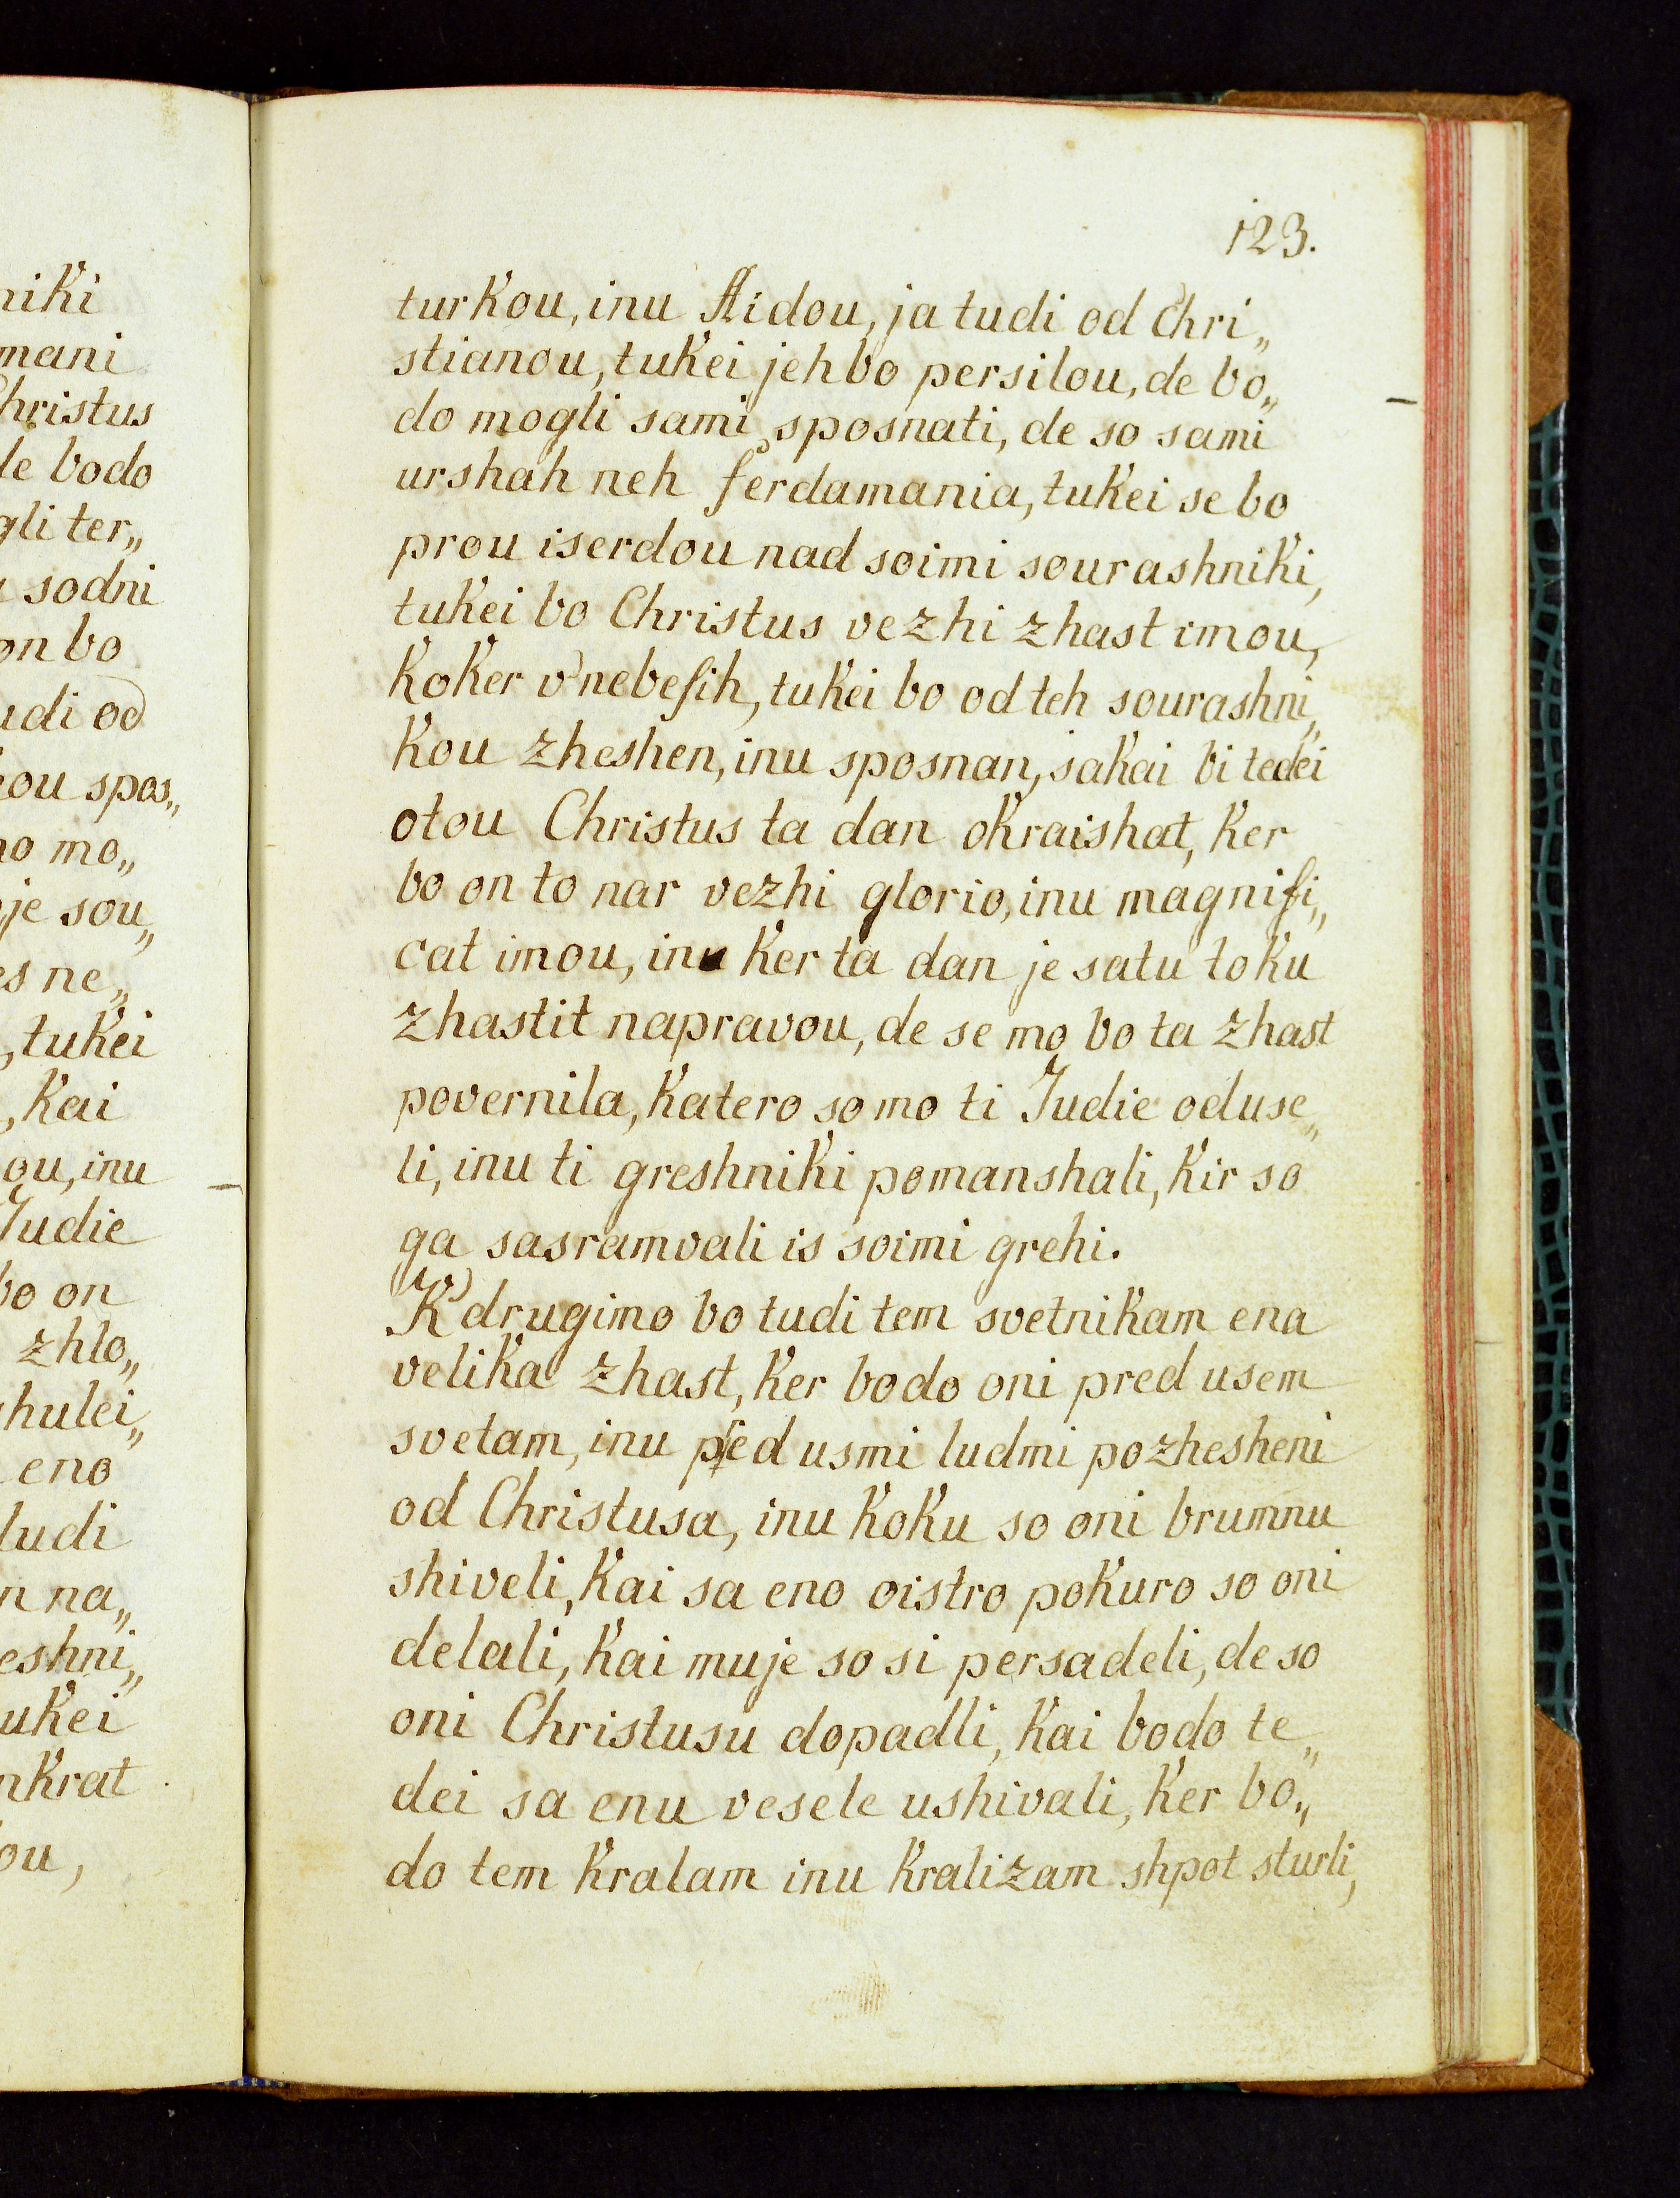 niki
mani
hristus
le bodo
gli ter„
sodni
on bo
udi od
ou spos„
no mo„
je sou„
es ne„
, tukei
, kai
ou, inu
Judie
bo on
zhlo„
hulei„
eno
ludi
n na„
eshni„
ukei
nkrat
ou,
123.
turkou, inu Aidou, ja tudi od Chri„
stianou, tukei jeh bo persilou, de bo„
do mogli sami sposnati, de so sami
urshah neh ferdamania, tukei se bo
prou iserdou nad soimi sourashniki,
tukei bo Christus vezhi zhast imou,
koker v' nebesih, tukei bo od teh sourashni„
kou zheshen, inu sposnan, sakai bi tedei
otou Christus ta dan okraishat, ker
bo on to nar vezhi glorio, inu magnifi„
cat imou, inu ker ta dan je satu toku
zhastit napravou, de se mo bo ta zhast
povernila, katero so mo ti Judie oduse„
li, inu ti greshniki pomanshali, kir so
ga sasramvali is soimi grehi.
K' drugimo bo tudi tem svetnikam ena
velika zhast, ker bodo oni pred usem
svetam, inu pred usmi ludmi pozhesheni
od Christusa, inu koku so oni brumnu
shiveli, kai sa eno oistro pokuro so oni
delali, kai muje so si persadeli, de so
oni Christusu dopadli, kai bodo te„
dei sa enu vesele ushivali, ker bo„
do tem kralam inu kralizam shpot sturli,